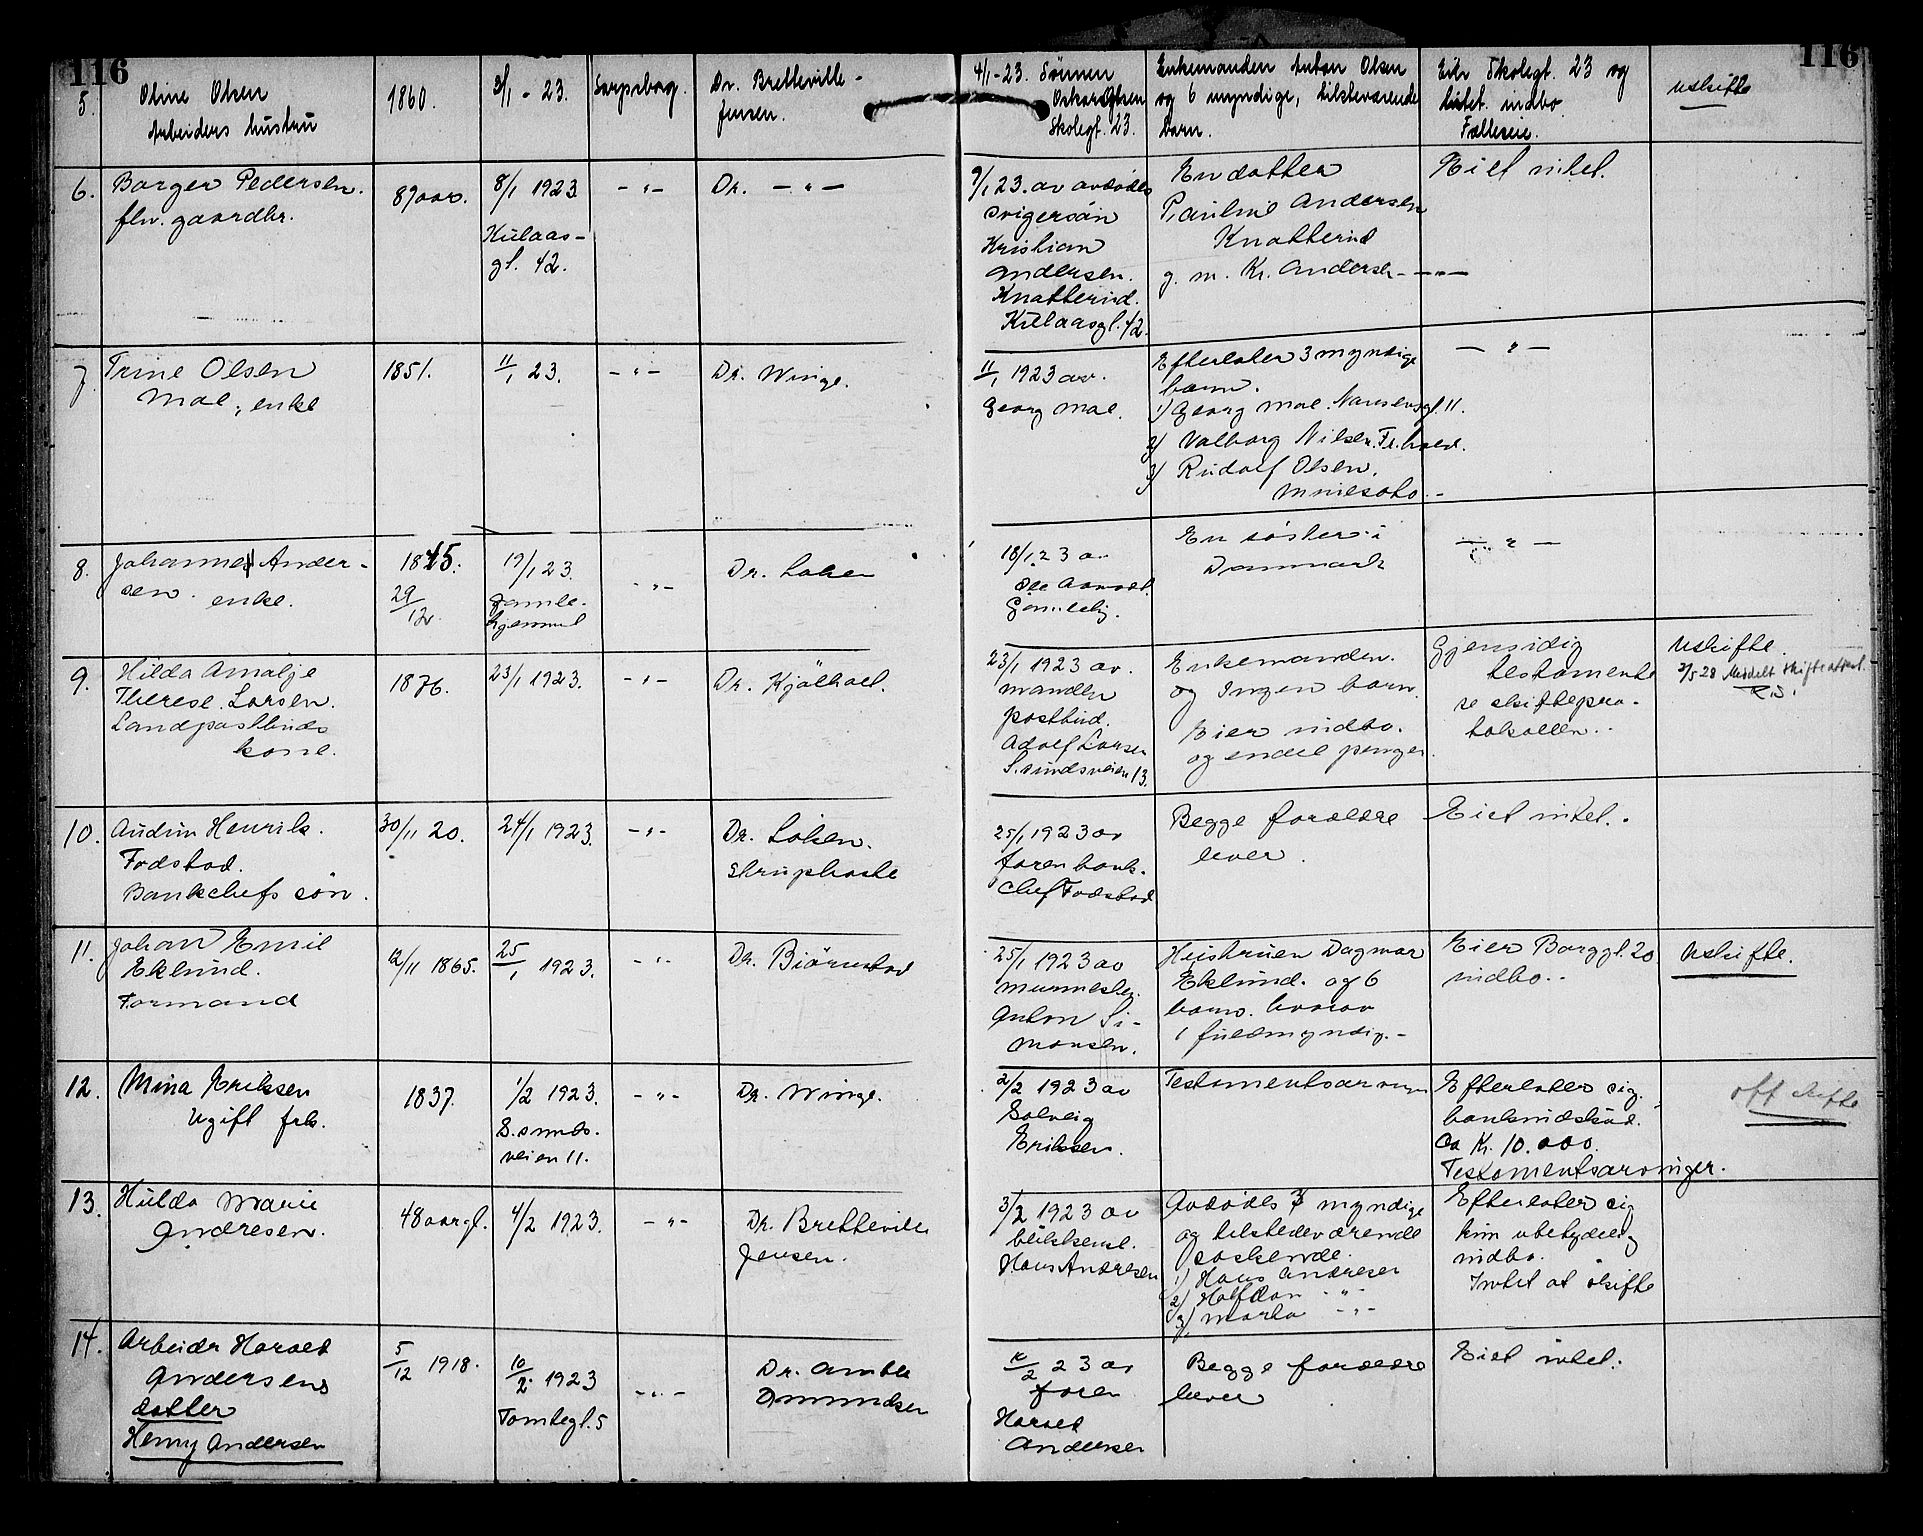 116
116
5.
Oline Olsen
Arbeiders hustru
1860.
3/1 - 23.
Sarpsborg.
Dr. Bretteville-
Jensen.
4/1-23. Sönnen
Oskar Olsen
Skolegt. 23.
Enkemanden Anton Olsen
og 6 myndige, tilsteværende
barn.
Eier Skolegt. 23 og
litet indbo.
Fælleseie.
Uskifte
6.
Borger Pedersen.
fhv. gaardbr.
89 aar.
8/1 1923
Kulaas-
gt. 42.
- " -
Dr. - " -
9/1 23. av avdödes
svigersön
Kristian
Andersen.
Knatterud.
Kulaasgt. 42.
En datter
Pauline Andersen
Knatterud
g. m. Kr. Andersen - " -
Eiet intet.
7.
Trine Olsen
Moe, enke
1851.
11/1 23.
- " -
Dr. Winge.
11/1 1923 av.
Georg Moe.
Efterlater 3 myndige
barn.
1) Georg Moe. Nansensgt. 11.
2) Valborg Nilsen. Fr.hald.
3) Rudolf Olsen.
Minesota. -
- " -
8.
Johanne Ander-
sen. enke.
1845.
29/12.
17/1 23.
Gamle-
hjemmet
- " -
Dr. Löken
18/1 23 av
Ole
Gamleby.
En söster i
Danmark
- " -
9.
Hilda Amalie
Therese Larsen.
Landpostbuds
kone.
1876.
23/1 1923.
- " -
Dr. Kjölbael.
23/1 1923 av.
manden
postbud.
Adolf Larsen
S.sundsveien 13.
Enkemanden.
og Ingen barn.
Eier indbo.
og endel penger.
Gjensidig
testamente
se skiftepro-
tokollen..
Uskifte.
2/5 28 Meddelt skifteattest.
10.
Audun Henrik.
Fodstad.
Bankchefs sön.
30/11 20.
24/1 1923.
- " -
Dr. Löken.
Struphoste
25/1 1923 av
faren bank-
chef Fodstad
Begge forældre
lever.
Eiet intet.
11.
Johan Emil
Eklund.
Formand
12/11 1865.
25/1 1923.
- " -
Dr. Björnstad
25/1 1923 av
murmester.
Anton Si-
monsen.
Hustruen Dagmar
Eklund. og 6
barn. hvorav
1 fuldmyndig. -
Eier Borggt. 20
indbo..
Uskifte.
12.
Mina Eriksen
Ugift frk.
1837.
1/2 1923.
S.sunds-
veien 11.
- " -
Dr. Winge.
2/2 1923 av
Solveig
Eriksen.
Testamentsarvinger
Efterlater sig.
bankindskud.
ca Kr. 10.000.
Testamentsarvinger.
off skifte
13.
Hulda Marie
Andresen.
48 aar gl.
4/2 1923.
- " -
Dr. Bretteville
Jensen.
3/2 1923 av
blikkensl.
Hans Andresen
Avdödes 3 myndige
og tilstedeværende
söskende.
1) Hans Andresen
2) Halfdan - " -
3) Marta - " -
Efterlater sig
kun ubetydelig
indbo.
Intet at skifte
14.
Arbeider Harald
Andersens
datter
Henny Andersen
5/12 1918.
10/2 1923
Tomtegt. 5
- " -
Dr. Amble
Ommundsen
10/2 23 av
faren
Harald
Andersen
Begge forældre
lever
Eiet intet.